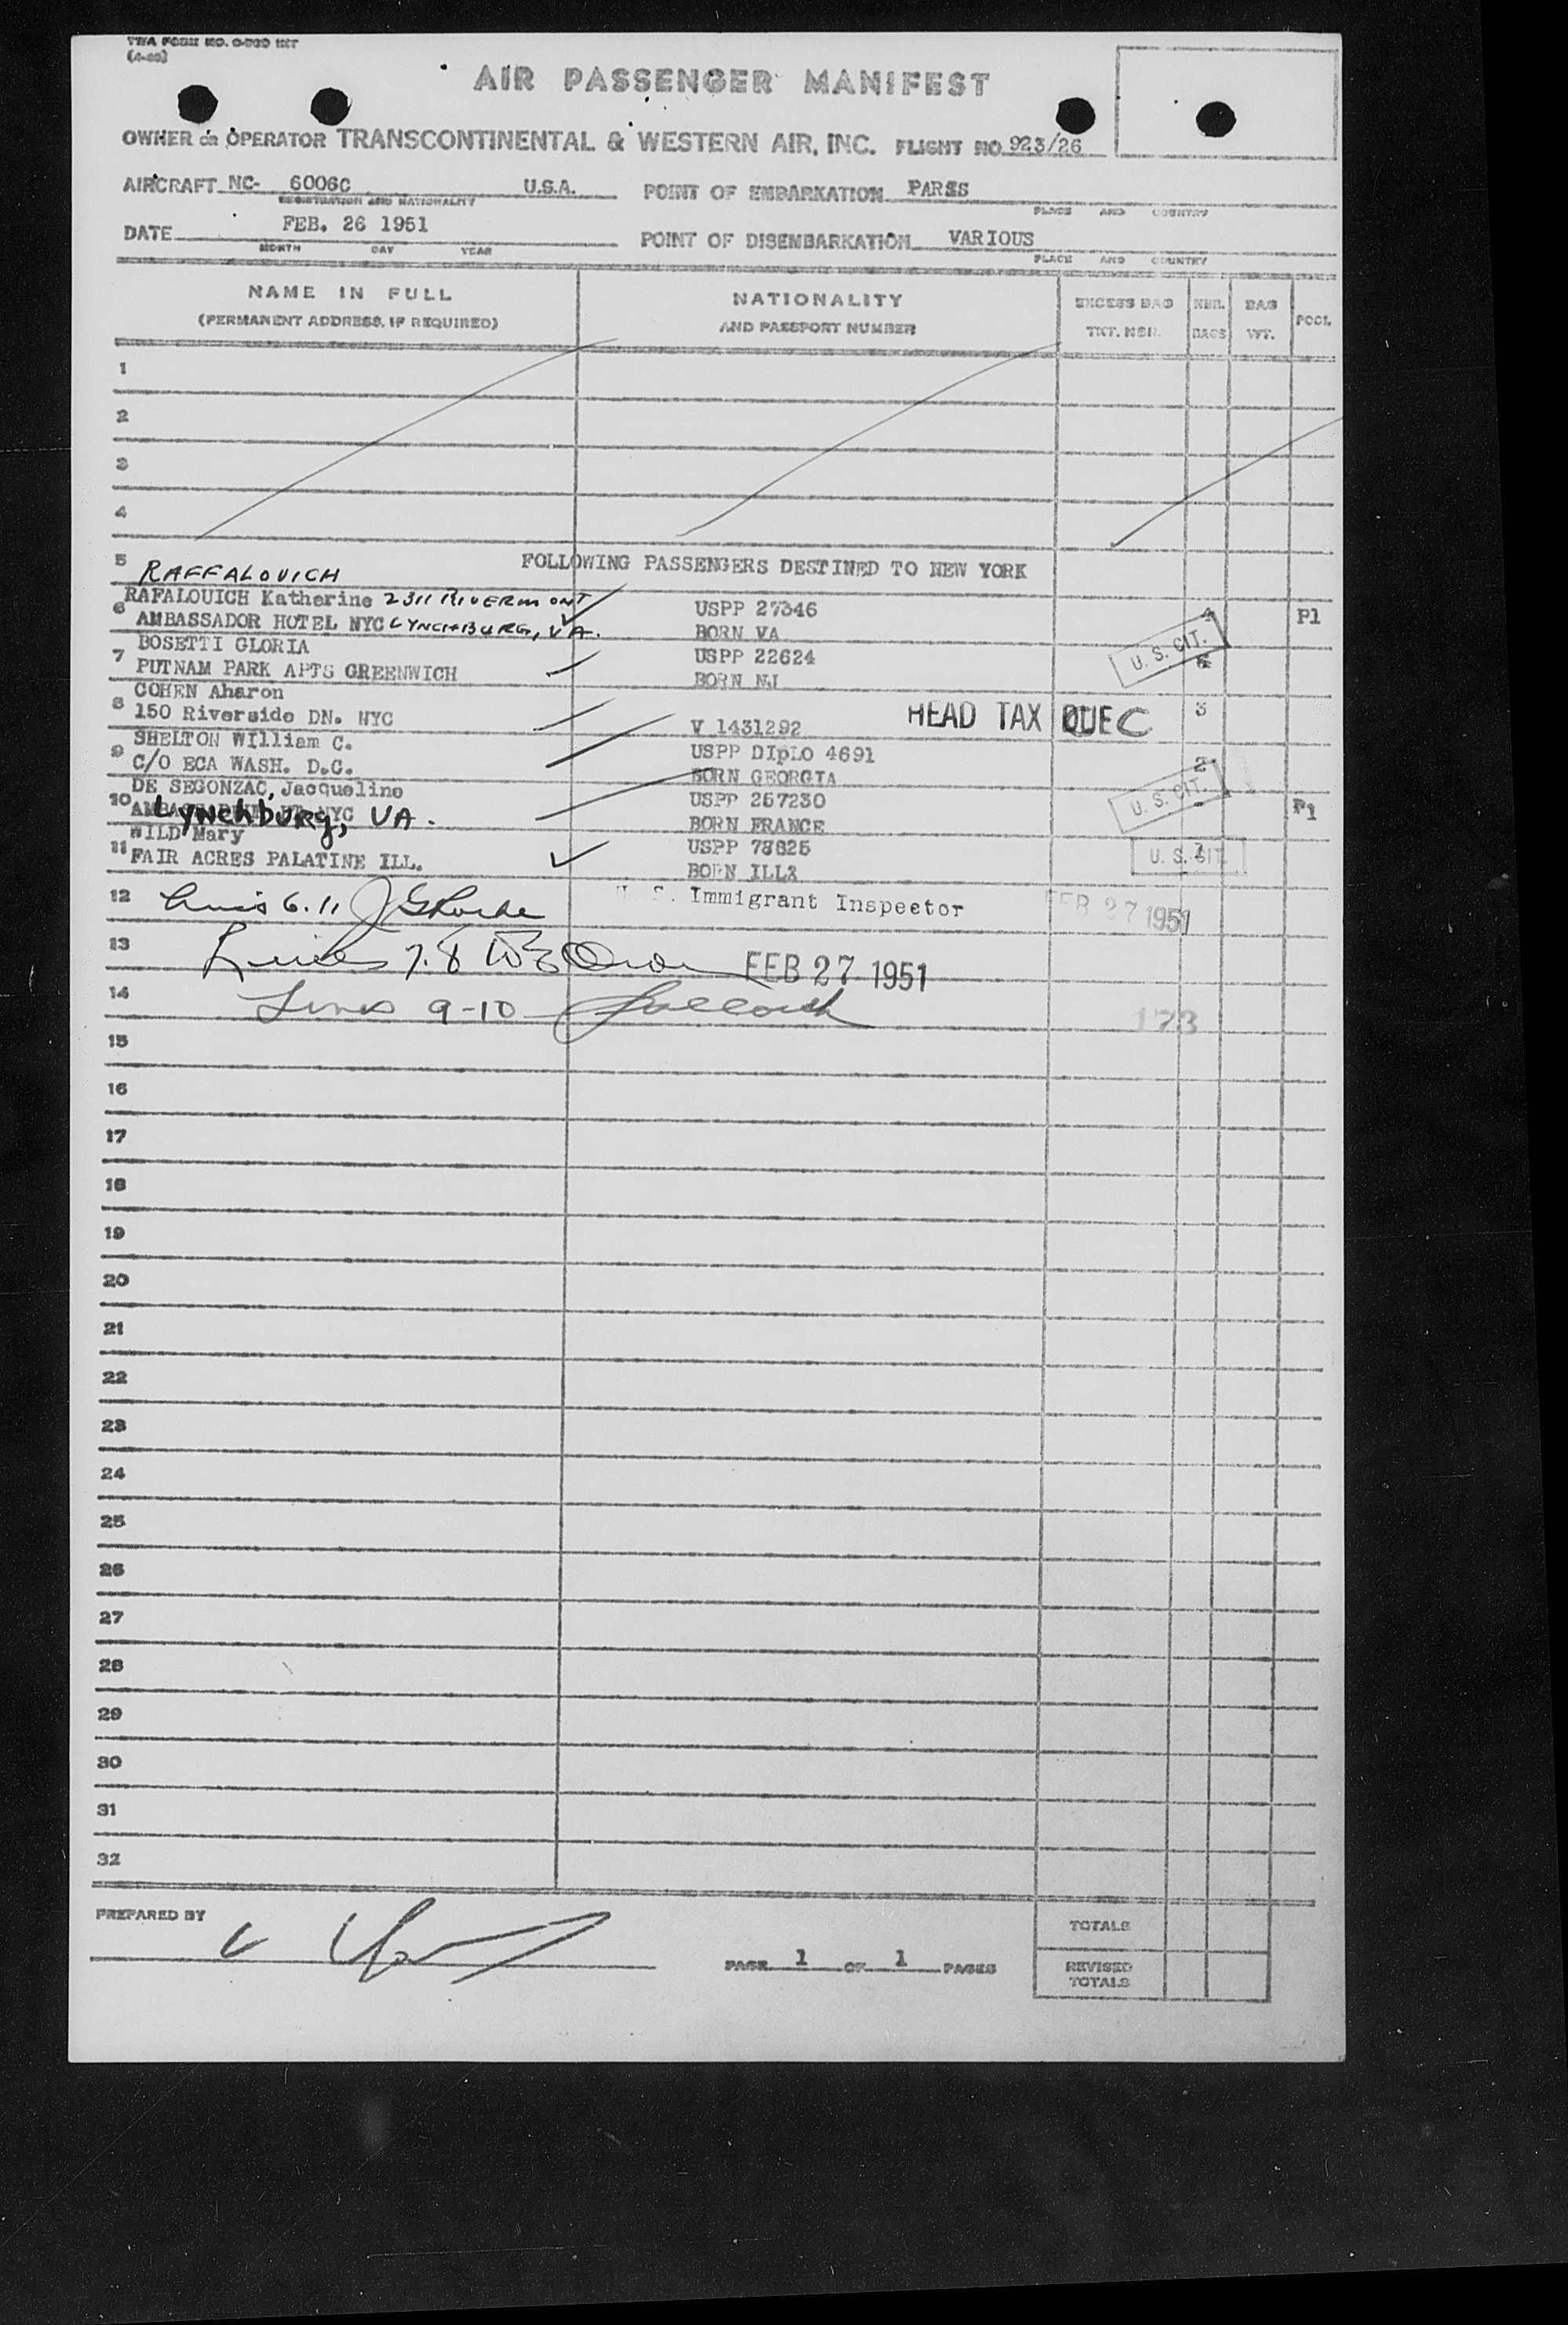 TWA FORM NO. O-920 INT
AIR PASSENGER MANIFEST
OWNER OR OPERATOR TRANSCONTINENTAL & WESTERN AIR, INC. FLIGHT NO. 923/26
AIRCRAFT NC- 6006C U.S.A. POINT OF EMBARKATION PARIS
REGISTRATION AND NATIONALITY PLACE AND COUNTRY
DATE FEB. 26 1951 POINT OF DISEMBARKATION VARIOUS
MONTH DAY YEAR PLACE AND COUNTRY
NAME IN FULL NATIONALITY EXCESS BAG NBR. BAG POOL
(PERMANENT ADDRESS, IF REQUIRED) AND PASSPORT NUMBER TKT. NBR. BAGS WT.
1
2
3
4
5 FOLLOWING PASSENGERS DESTINED TO NEW YORK
RAFFALOVICH
RAFALOUICH Katherine 2311 RIVERMONT USPP 27346 4 P1
6 AMBASSADOR HOTEL NYC LYNCHBURG, VA. BORN VA U. S. CIT.
BOSETTI GLORIA USPP 22624
7 PUTNAM PARK APTS GREENWICH BORN NJ
COHEN Aharon
8 150 Riverside DN. NYC V 1431292 HEAD TAX DUE C 3
SHELTON William C. USPP DIpLO 4691
9 C/O ECA WASH. D.C. BORN GEORGIA 2
DE SEGONZAC, Jacqueline USPP 257230 U. S. CIT. P1
10 Lynchburg, VA. BORN FRANCE
WILD Mary USPP 78825
11 FAIR ACRES PALATINE ILL. BORN ILLX U. S. CIT.
12 Lines 6.11 U. S. Immigrant Inspector FEB 27 1951
13 Lines 7.8 FEB 27 1951
14 Lines 9-10 173
15
16
17
18
19
20
21
22
23
24
25
26
27
28
29
30
31
32
PREPARED BY TOTALS
PAGE 1 OF 1 PAGES REVISED TOTALS